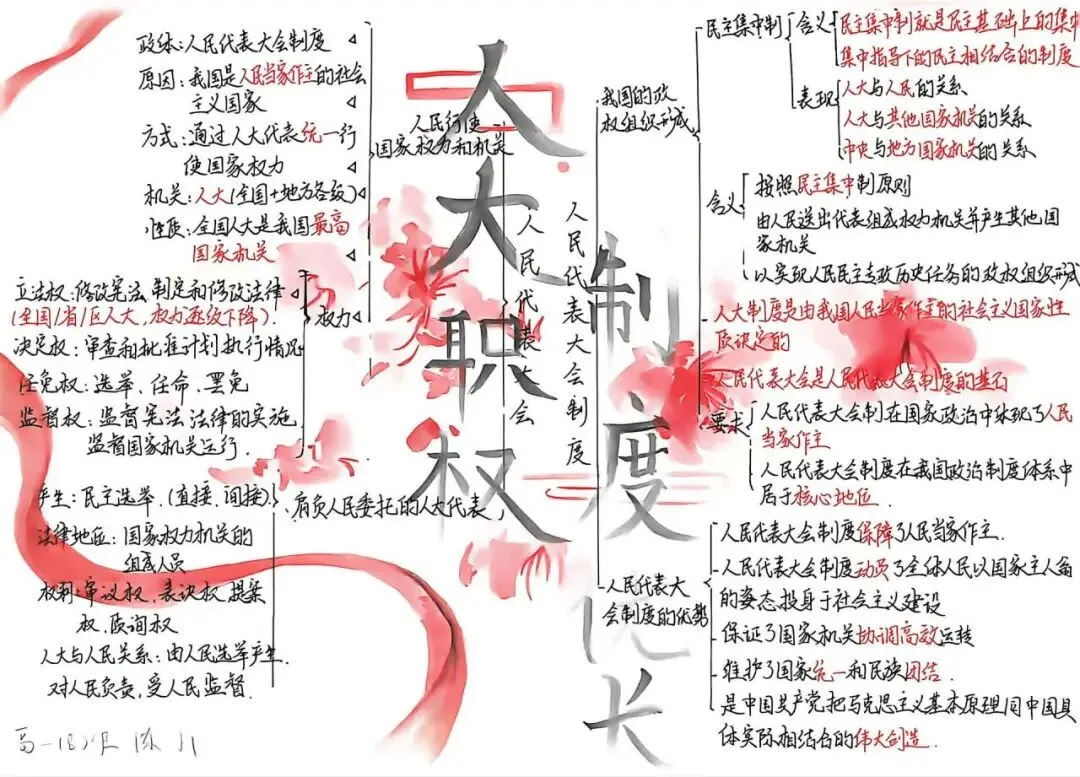 人大职权
制度优长
人民代表大会
人民代表大会制度
人民行使
国家权力和机关
政体:人民代表大会制度
原因:我国是人民当家作主的社会
主义国家
方式:通过人大代表统一行
使国家权力
机关:人大(全国+地方各级)
性质:全国人大是我国最高
国家机关
权力
立法权:修改宪法,制定和修改法律
(全国/省/区人大,权力逐级下降).
决定权:审查和批准计划执行情况
任免权:选举、任命、罢免
监督权:监督宪法法律的实施
监督国家机关运行.
肩负人民委托的人大代表
产生:民主选举.(直接、间接).
法律地位:国家权力机关的
组成人员
权利:审议权、表决权、提案
权、质询权
人大与人民关系:由人民选举产生.
对人民负责,受人民监督.
我国的政
权组织形成
民主集中制
含义
民主集中制就是民主基础上的集中
集中指导下的民主相结合的制度
表现
人大与人民的关系
人大与其他国家机关的关系
中央与地方国家机关的关系
含义
按照民主集中制原则
由人民选出代表组成权力机关并产生其他国
家机关
以实现人民民主专政历史任务的政权组织形式
人大制度是由我国人民当家作主的社会主义国家性
质决定的
人民代表大会是人民代表大会制度的基石
要求
人民代表大会制在国家政治中体现了人民
当家作主
人民代表大会制度在我国政治制度体系中
居于核心地位.
人民代表大
会制度的优势
人民代表大会制度保障了人民当家作主.
人民代表大会制度动员了全体人民以国家主人翁
的姿态投身于社会主义建设
保证了国家机关协调高效运转
维护了国家统一和民族团结.
是中国共产党把马克思主义基本原理同中国具
体实际相结合的伟大创造.
高一(8)班